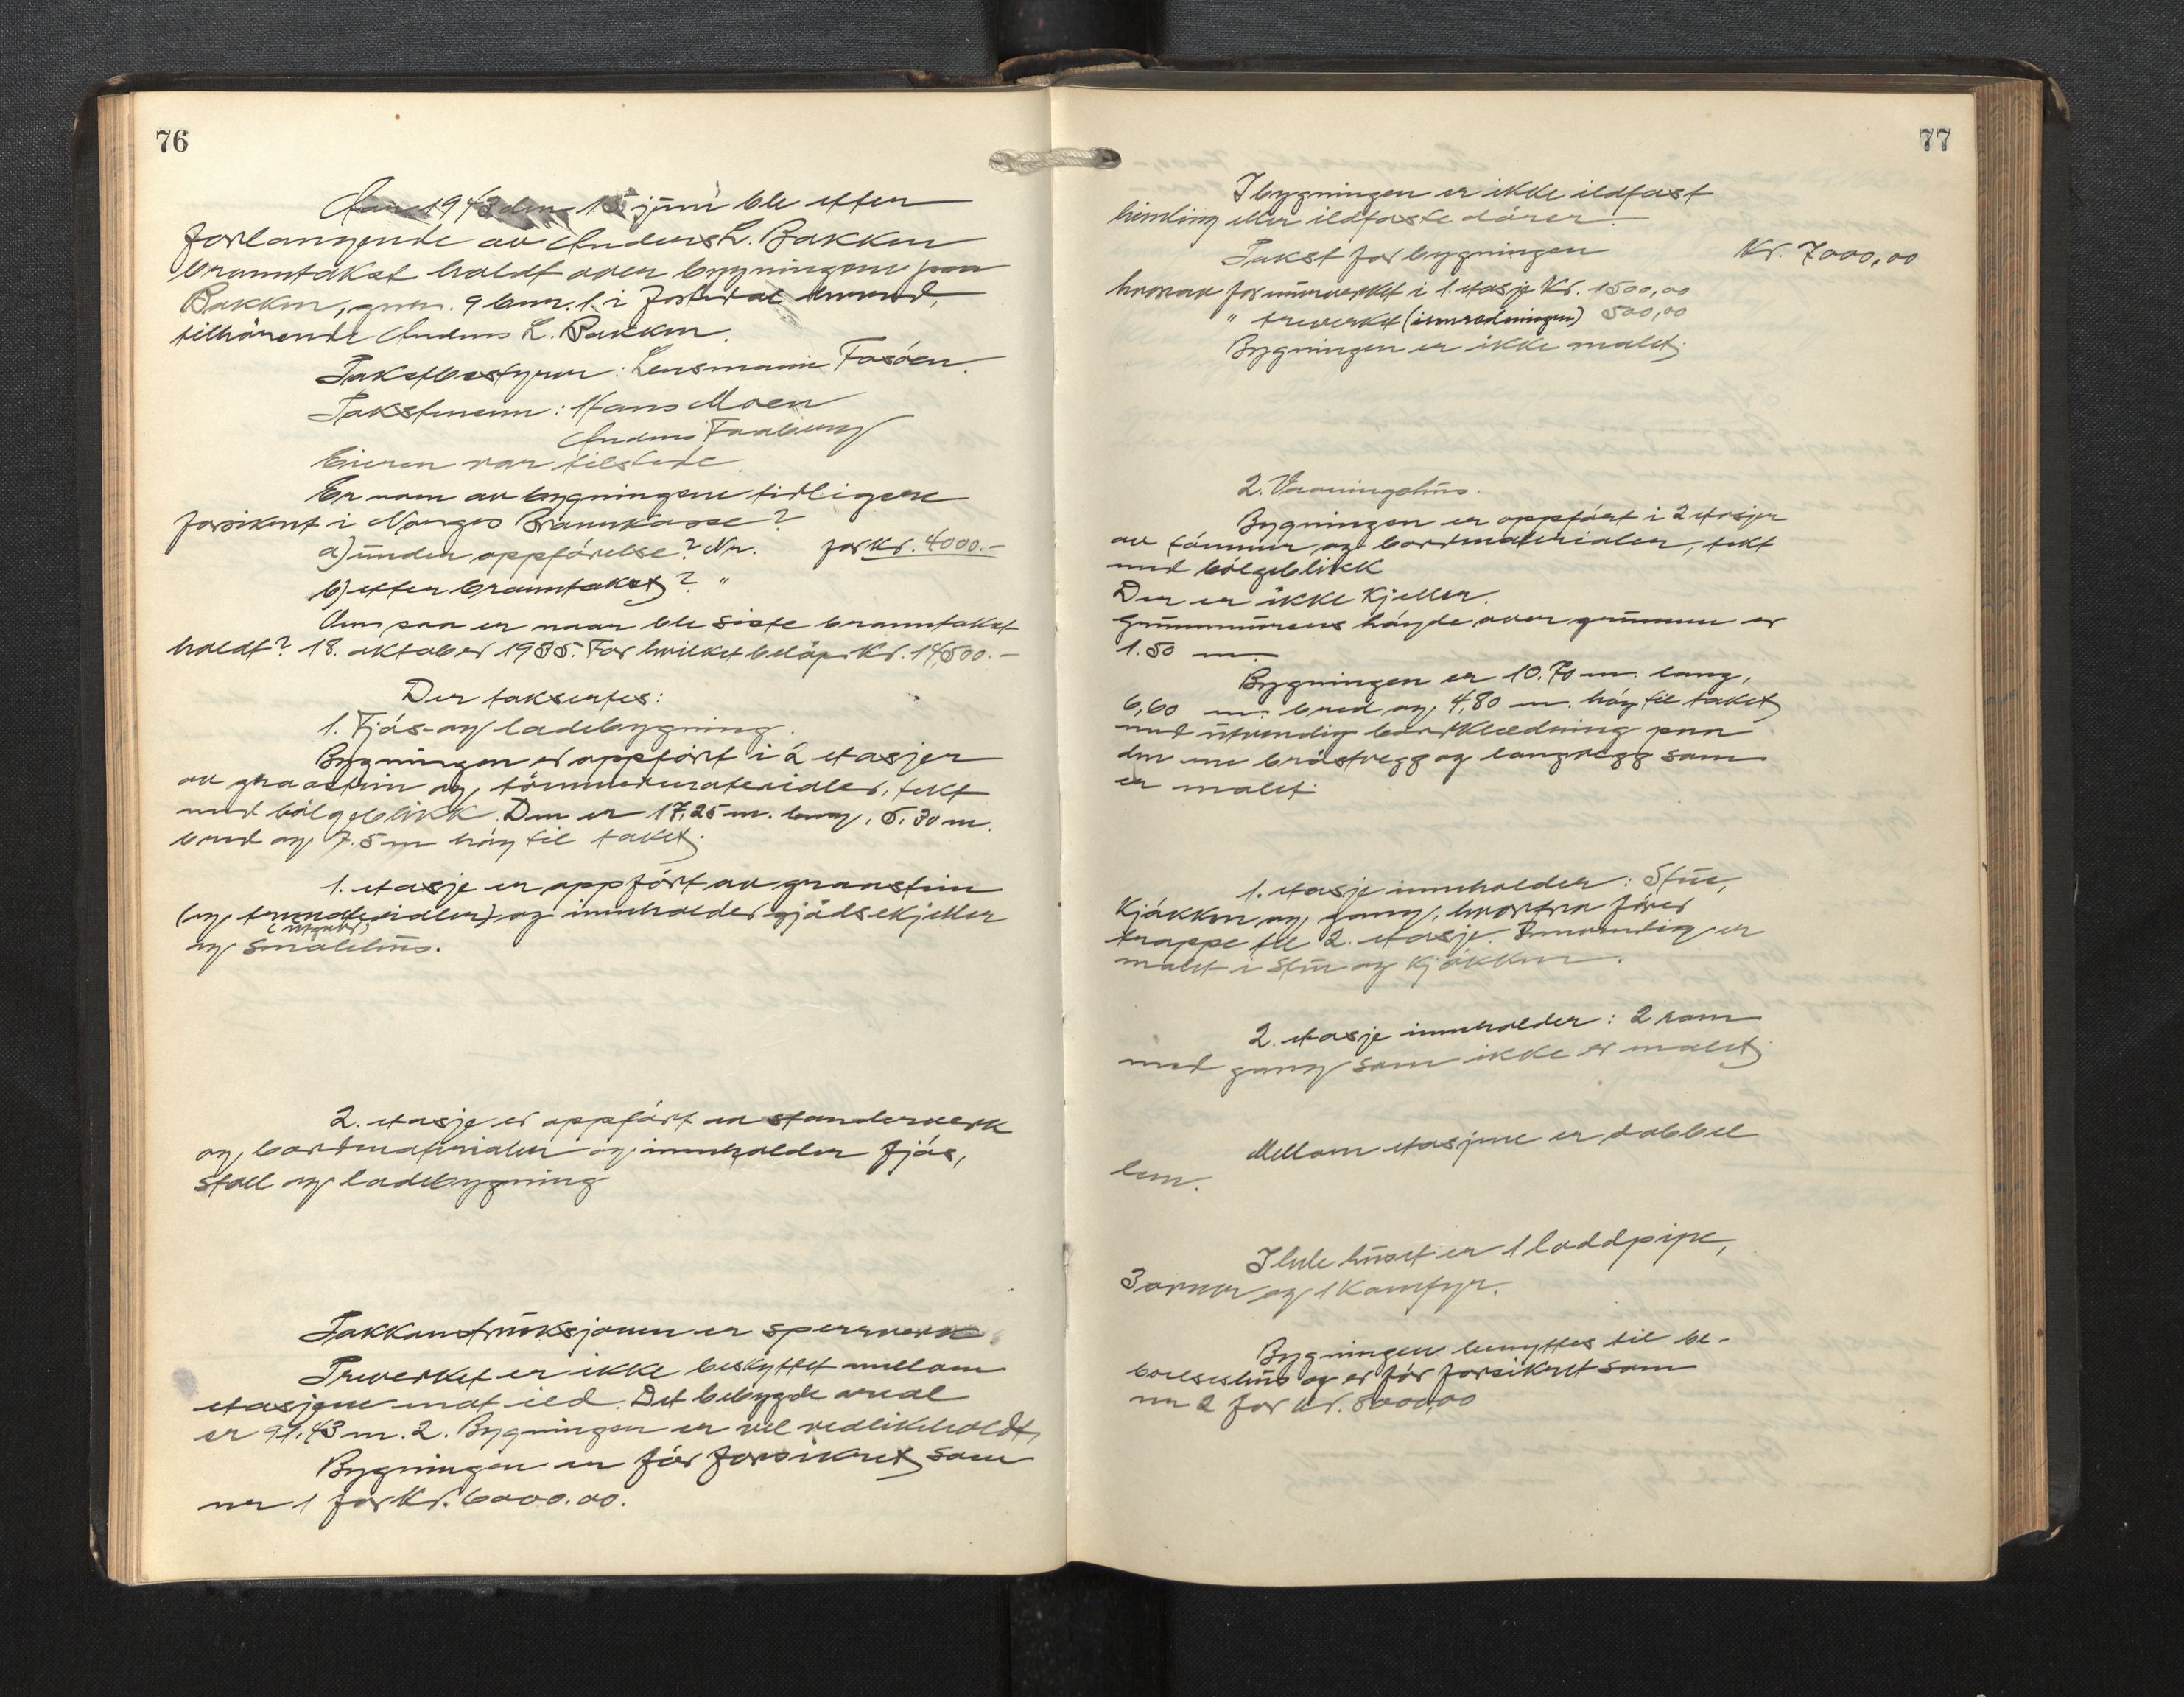 76
Aar 1943 den 15 juni ble etter
forlangende av Anders L. Bakken
branntakst holdt over bygningene paa
Bakken, gnr. 9 bnr. 1. i Jostedal herred,
tilhørende Anders L. Bakken.
Takstbestyrer: Lensmann Fosøen.
Takstmenn: Hans Moen
Anders Faaberg
Eieren var tilstede.
Er noen av bygningene tidligere
forsikret i Norges Brannkasse?
a) under oppførelse? Nr. for Kr. 4000.-
b) etter branntakst? "
Om saa er naar ble siste branntakst
holdt? 18. oktober 1935. For hvilket beløp Kr. 14500.-
Der taksertes:
1. Fjøs- og ladebygning.
Bygningen er oppført i 2 etasjer
av graastein og tømmermaterialer, tekt
med bølgeblikk. Den er 17,25 m. lang, 5,30 m.
bred og 7.5 m høg til taket.
1. etasje er oppført av graastein
(og trematerialer) og inneholder gjødselkjeller
(utgaar)
og smalehus.
2. etasje er oppført av standerverk
og bordmaterialer og inneholder fjøs,
stall og ladebygning
Takkonstruksjonen er sperreverk.
Treverket er ikke beskyttet mellom
etasjene mot ild. Det bebygde areal
er 91,43 m. 2. Bygningen er vel vedlikeholdt,
Bygningen er før forsikret som
nr 1 for Kr. 6000.00.
77
I bygningen er ikke ildfast
himling eller ildfaste dører.
Takst for bygningen Kr. 7000,00
hvorav for murverket i 1. etasje Kr. 1500,00
" treverket (innredningen) 500,00
Bygningen er ikke malt.
2. Vaaningshus.
Bygningen er oppført i 2 etasjer
av tømmer og bordmaterialer, tekt
med bølgeblikk
Der er ikke Kjeller.
Grunnmurens høyde over grunnen er
1.50 m.
Bygningen er 10.70 m. lang,
6,60 m. bred og 4,80 m. høg til taket
med utvendig bordkledning paa
den ene brøstvegg og langvegg som
er malt.
1. etasje inneholder: Stue,
Kjøkken og gang, hvorfra fører
trappe til 2. etasje. Innvendig er
malt i stue og Kjøkken.
2. etasje inneholder: 2 rom
med gang som ikke er malt.
Mellom etasjene er dobbel
lem.
I hele huset er 1 loddpipe,
3 ovner og 1 Komfyr.
Bygningen benyttes til be-
boelseshus og er før forsikret som
nr 2 for Kr. 8000,00